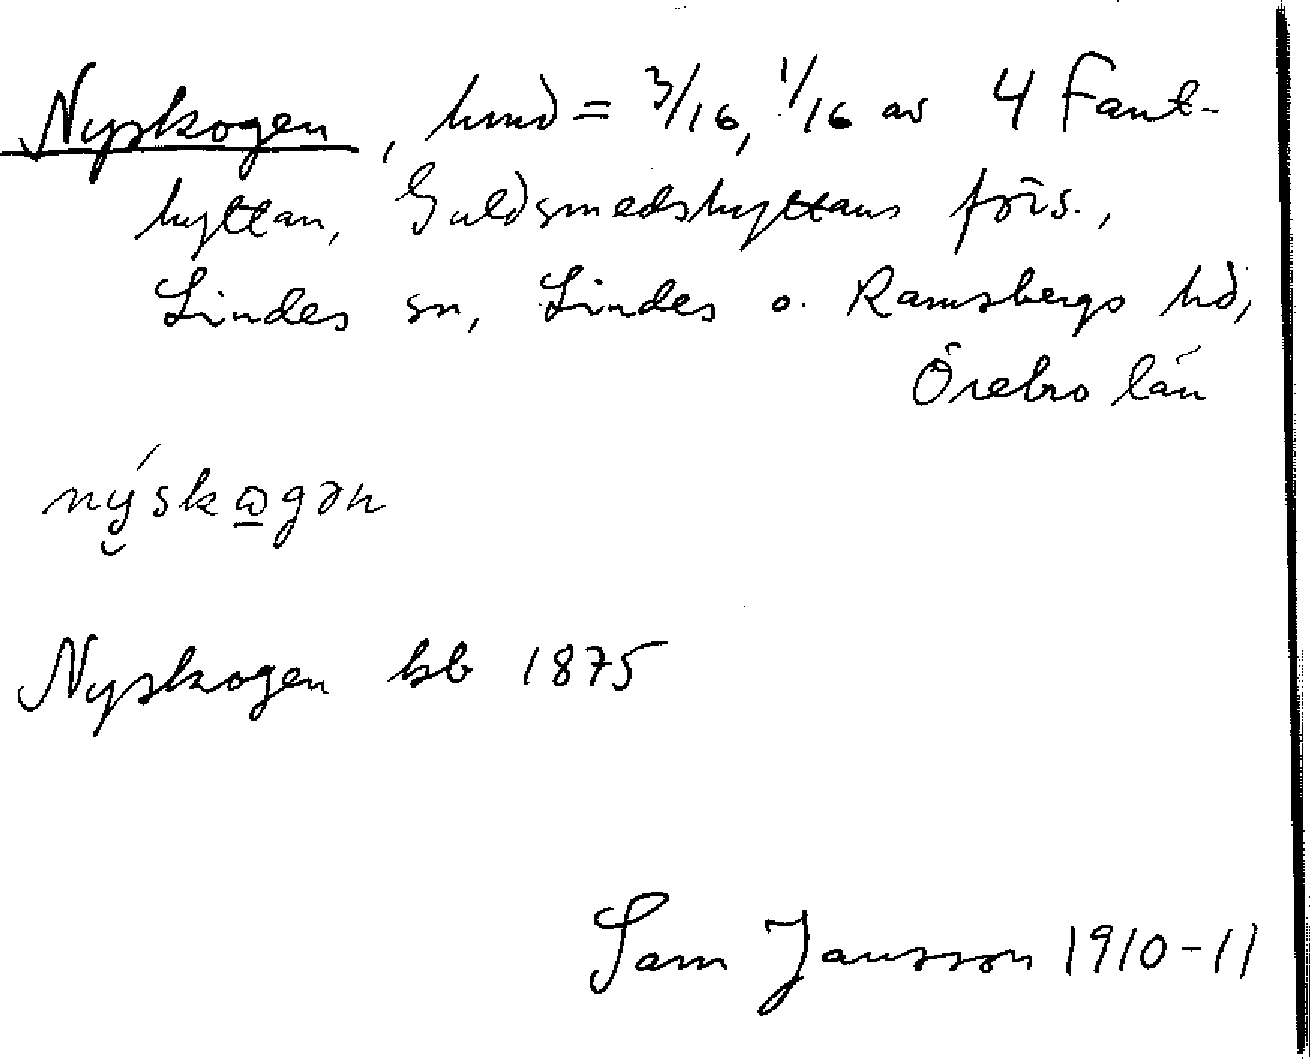 Nyskogen, hmd = 3/16, 1/16 av 4 Fant-
hyttan, Guldsmedshyttans förs.,
Lindes sn, Lindes o. Ramsbergs hd,
Örebro län
nýskωgən
Nyskogen kb 1875
Sam Jansson 1910-11